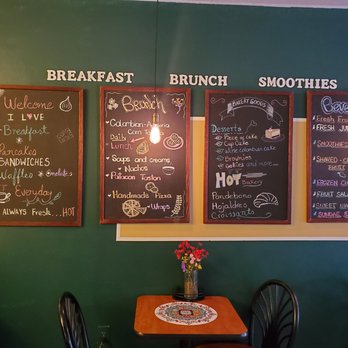 BREAKFAST BRUNCH SMOOTHIES
Welcome
I LOVE
Breakfast
Pancakes
SANDWICHES
Waffles Omelets
I Everyday
ALWAYS Fresh...HOT
Brunch
Colombian-Arepa
Corn
Daily
Lunch
Soups and creams
Nachos
Patacon Toston
Handmade Pizza
Wraps
BAKERY GOODS
Desserts
Piece of cake
Cup Cake
Wine colombian cake
Brownies
Cookies and more...
HOT Bakery
Pandebono
Hojaldres
Croissants
Beve
Fresh
FRESH JU
SMOOTH
FRUIT
FROZEN
FRUIT SAL
SWEET